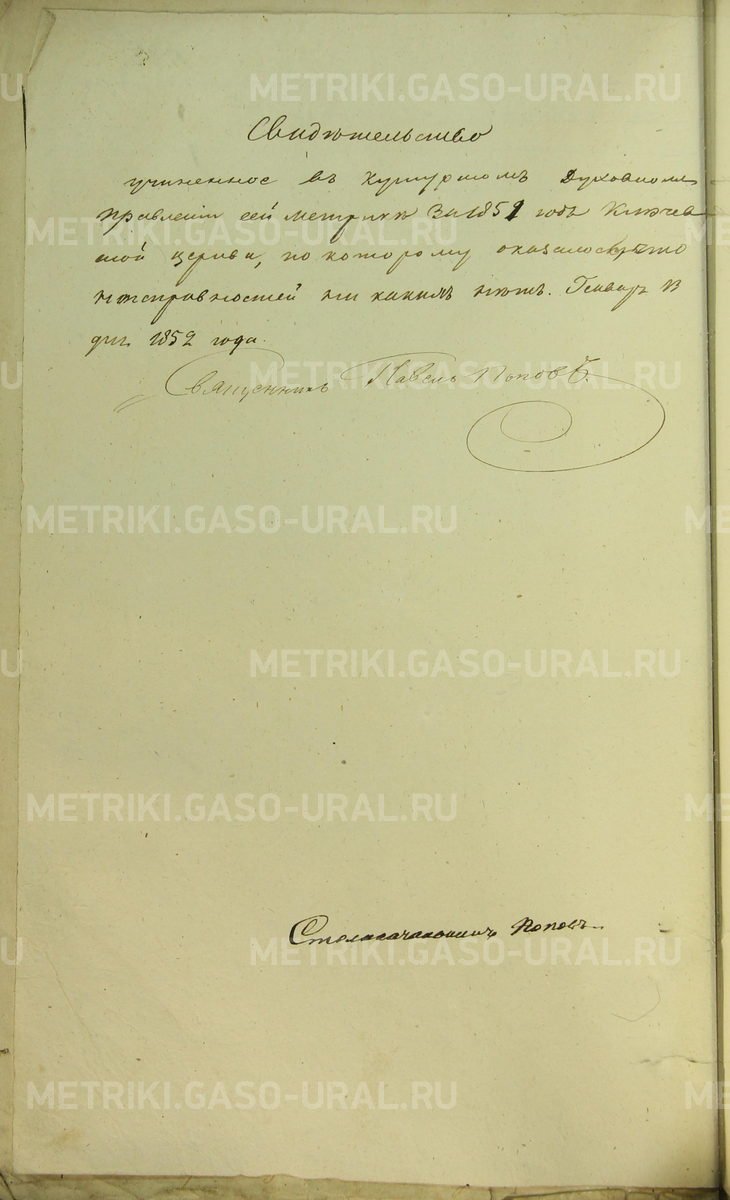 Свидѣтельство
учиненное въ Кунгурскомъ Духовномъ
Правленіи сей метрики за 1851 годъ Ключев
ской церкви, по которому оказалось что
неисправностей ни какихъ нѣтъ. Генваря 13
дня 1852 года.
Священникъ Павелъ Поповъ.
Столоначальникъ Поповъ
METRIKI.GASO-URAL.RU
METRIKI.GASO-URAL.RU
METRIKI.GASO-URAL.RU
METRIKI.GASO-URAL.RU
METRIKI.GASO-URAL.RU
METRIKI.GASO-URAL.RU
METRIKI.GASO-URAL.RU
METRIKI.GASO-URAL.RU